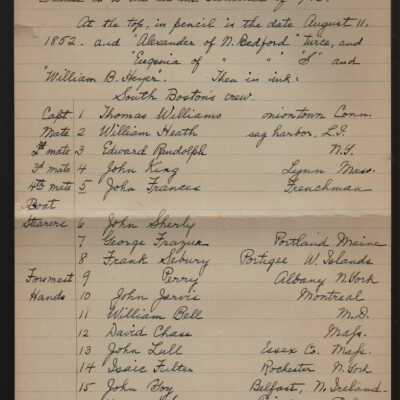 At the top, in pencil is the date August 11,
1852. and "Alexander of N. Bedford" twice, and
"Eugenia of " " "S" and
"William B. Heyer". Then in ink:
South Boston's crew.
Capt 1 Thomas Williams oniontown Conn.
Mate 2 William Heath sag harbor, L.I.
2d mate 3 Edward Rudolph N.Y.
3d mate 4 John King Lynn Mass.
4th mate 5 John Frances Frenchman
Boat
Stearers 6 John Sherly
7 George Frazier Portland Maine
8 Frank Sebury Portigee W. Islands
Foremast 9 Perry Albany N. York
Hands 10 John Jarvis Montreal
11 William Bell M.D.
12 David Chass Mass.
13 John Lull Essex Co. Mass.
14 Isaic Fulter Rochester N. York
15 John Boy Belfast, N. Ireland.